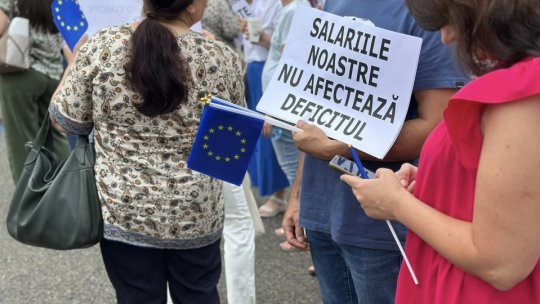 SALARIILE
NOASTRE
NU AFECTEAZĂ
DEFICITUL